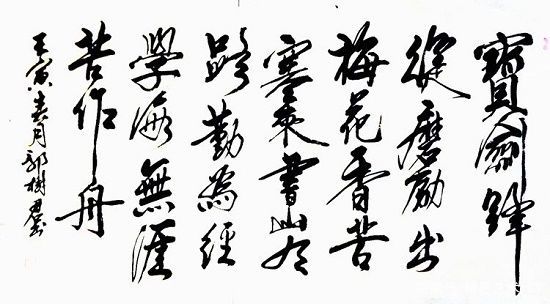 寶劍鋒
從磨勵出
梅花香苦
寒來書山有
路勤為經
學海無涯
苦作舟
壬寅春月郭樹